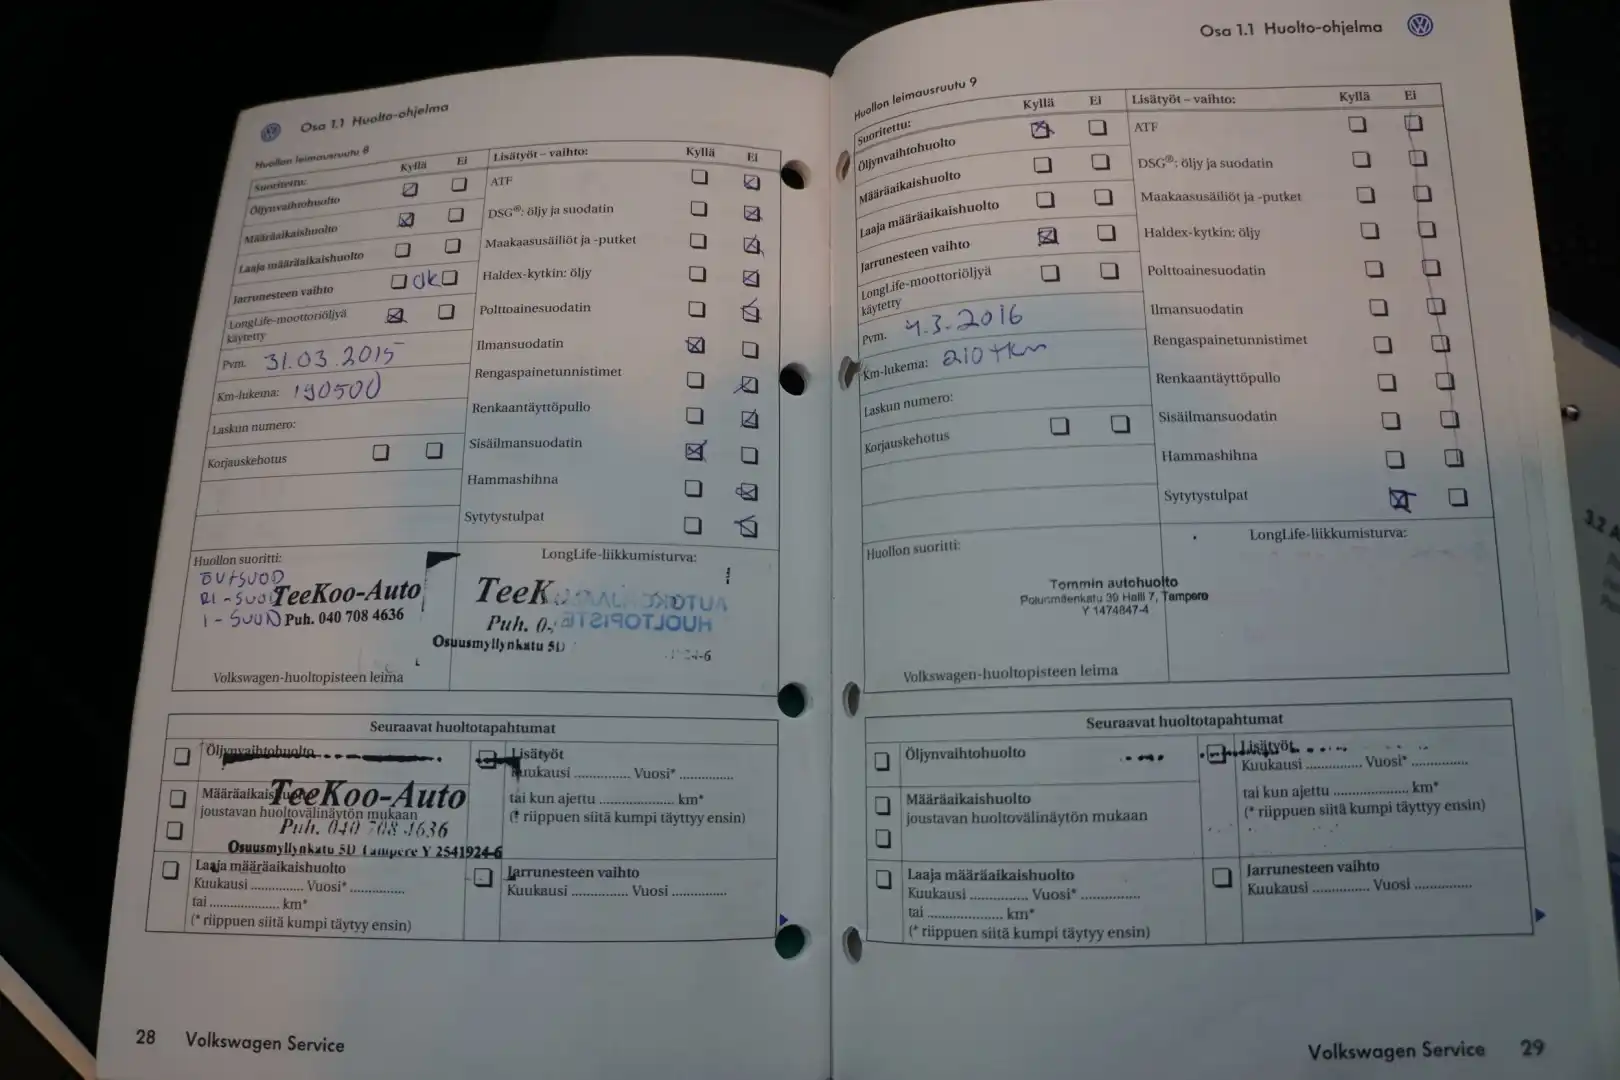 Osa 1.1 Huolto-ohjelma
Huollon leimausruutu 8
Suoritettu:
Kyllä
Ei
Öljynvaihtohuolto
Määräaikaishuolto
Laaja määräaikaishuolto
Jarrunesteen vaihto
ok
LongLife-moottoriöljyä
käytetty
Pvm. 31.03.2015
Km-lukema: 190500
Laskun numero:
Korjauskehotus
Lisätyöt – vaihto:
Kyllä
Ei
ATF
DSG®: öljy ja suodatin
Maakaasusäiliöt ja -putket
Haldex-kytkin: öljy
Polttoainesuodatin
Ilmansuodatin
Rengaspainetunnistimet
Renkaantäyttöpullo
Sisäilmansuodatin
Hammashihna
Sytytystulpat
Huollon suoritti:
TeeKoo-Auto
I-SUOD Puh. 040 708 4636
Volkswagen-huoltopisteen leima
LongLife-liikkumisturva:
TeeK
Puh. 0
HUOLTOPISTE
Osuusmyllynkatu 5D
Seuraavat huoltotapahtumat
Öljynvaihtohuolto
TeeKoo-Auto
joustavan huoltovälinäytön mukaan
Puh. 040 708 4636
Osuusmyllynkatu 5D Tampere Y 2541924-6
Laaja määräaikaishuolto
Kuukausi .............. Vuosi* ..............
tai .................... km*
(* riippuen siitä kumpi täytyy ensin)
Lisätyöt
Kuukausi .............. Vuosi* ..............
tai kun ajettu .................... km*
(* riippuen siitä kumpi täyttyy ensin)
Jarrunesteen vaihto
Kuukausi .............. Vuosi ..............
28 Volkswagen Service
Osa 1.1 Huolto-ohjelma
Huollon leimausruutu 9
Suoritettu:
Kyllä
Ei
Öljynvaihtohuolto
Määräaikaishuolto
Laaja määräaikaishuolto
Jarrunesteen vaihto
LongLife-moottoriöljyä
käytetty
Pvm. 4.3.2016
Km-lukema: 210 tkm
Laskun numero:
Korjauskehotus
Lisätyöt – vaihto:
Kyllä
Ei
ATF
DSG®: öljy ja suodatin
Maakaasusäiliöt ja -putket
Haldex-kytkin: öljy
Polttoainesuodatin
Ilmansuodatin
Rengaspainetunnistimet
Renkaantäyttöpullo
Sisäilmansuodatin
Hammashihna
Sytytystulpat
Huollon suoritti:
Tommin autohuolto
39 Halli 7, Tampere
Y 1474847-4
Volkswagen-huoltopisteen leima
LongLife-liikkumisturva:
Seuraavat huoltotapahtumat
Öljynvaihtohuolto
Määräaikaishuolto
joustavan huoltovälinäytön mukaan
Laaja määräaikaishuolto
Kuukausi .............. Vuosi* ..............
tai .................... km*
(* riippuen siitä kumpi täytyy ensin)
Lisätyöt
Kuukausi .............. Vuosi* ..............
tai kun ajettu .................... km*
(* riippuen siitä kumpi täyttyy ensin)
Jarrunesteen vaihto
Kuukausi .............. Vuosi ..............
Volkswagen Service 29
3.2 A